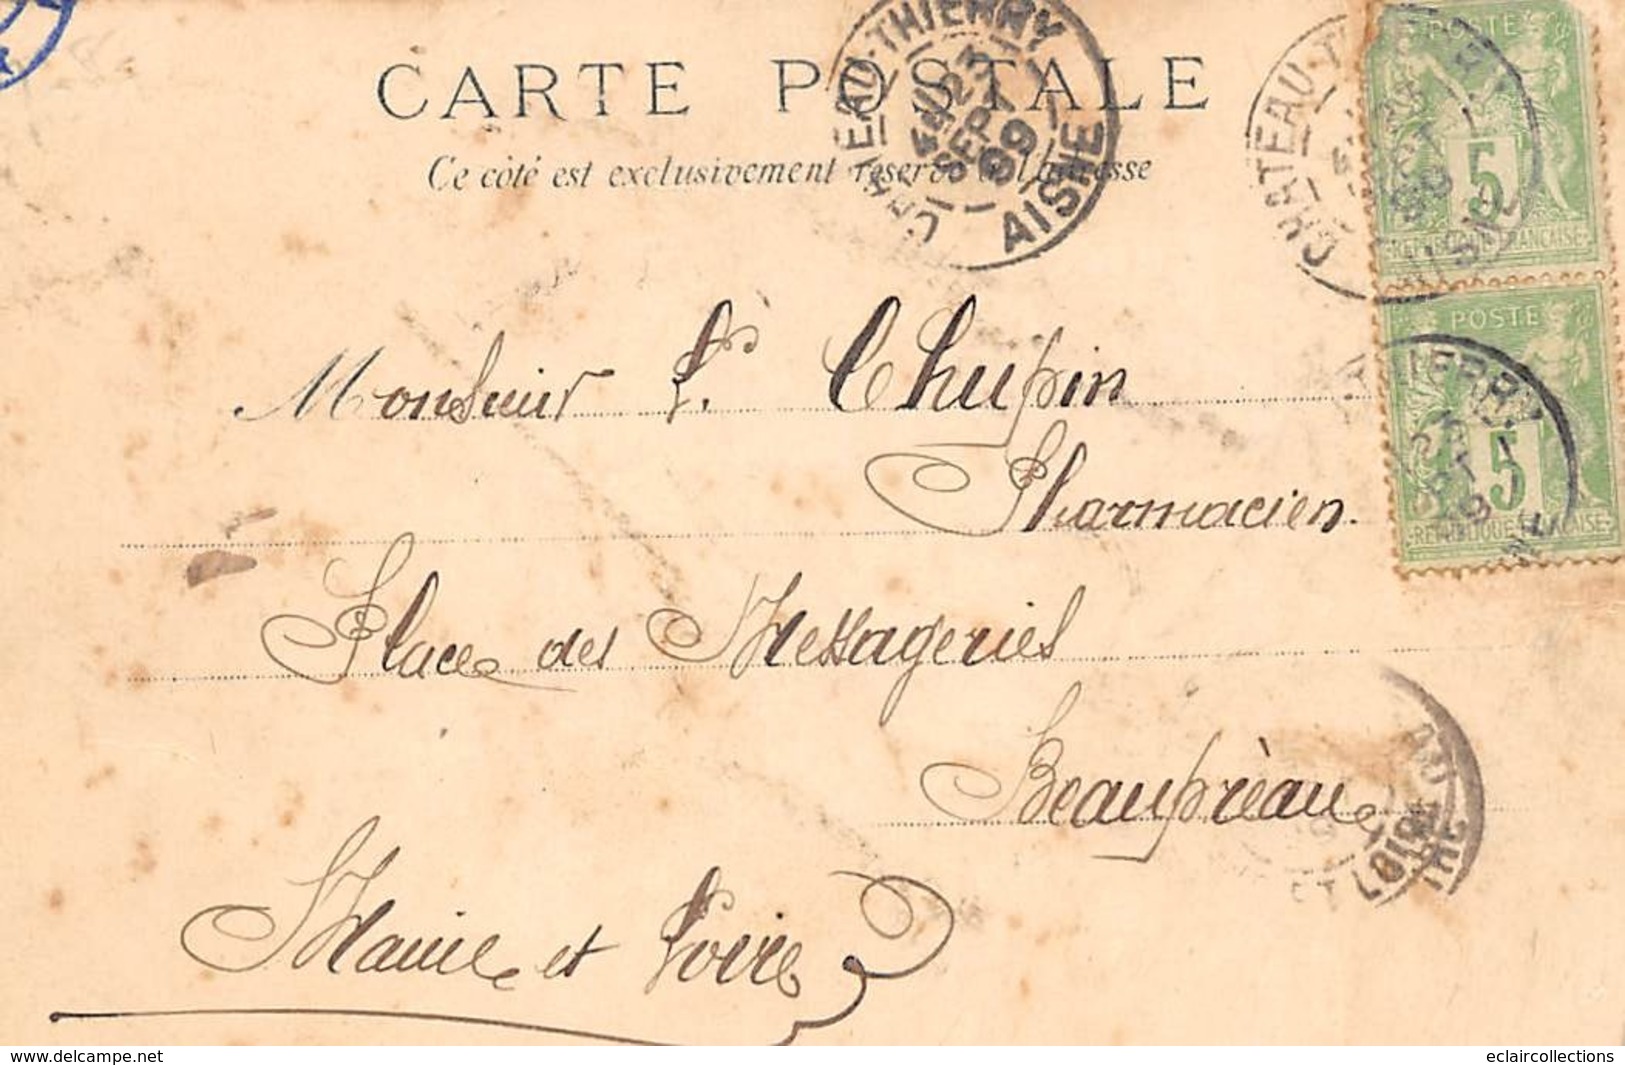 CARTE POSTALE
Ce côté est exclusivement réservé à l'adresse
CHATEAU-THIERRY
23
SEPT
99
AISNE
POSTE
5
REPUBLIQUE FRANÇAISE
POSTE
5
REPUBLIQUE FRANÇAISE
Monsieur L. Chupin
Pharmacien.
Place des Messageries
Beaupréau
ET LOIRE
Maine et Loire
www.delcampe.net
eclaircollections